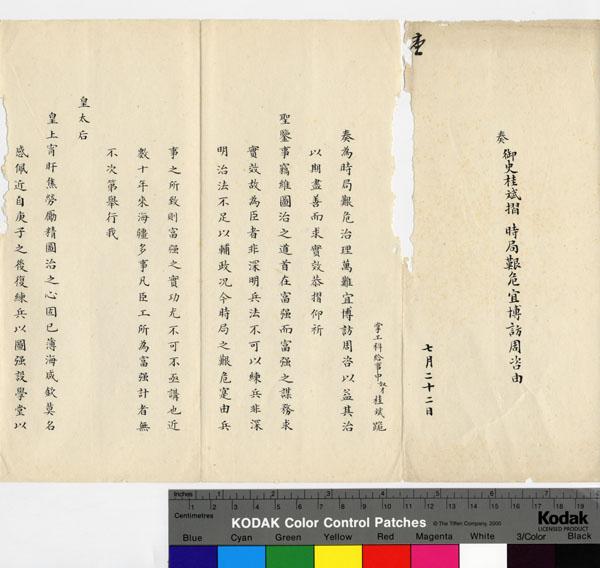 奏
御史桂斌摺 時局艱危宜博訪周咨由
七月二十二日
掌工科給事中奴才桂斌跪
奏為時局艱危治理萬難宜博訪周咨以益其治
以期盡善而求實效恭摺仰祈
聖鑒事竊維圖治之道首在富强而富强之謀務求
實效故為臣者非深明兵法不可以練兵非深
明治法不足以輔政况今時局之艱危寔由兵
事之所致則富强之實功尤不可不亟講也近
數十年來海疆多事凡臣工所為富强計者無
不次第舉行我
皇太后
皇上宵旰焦勞勵精圖治之心固已薄海咸欽莫名
感佩近自庚子之後復練兵以圖强設學堂以
Inches 1 2 3 4 5 6 7
Centimetres 1 2 3 4 5 6 7 8 9 10 11 12 13 14 15 16 17 18 19
KODAK Color Control Patches © The Tiffen Company, 2000 Kodak
LICENSED PRODUCT
Blue Cyan Green Yellow Red Magenta White 3/Color Black